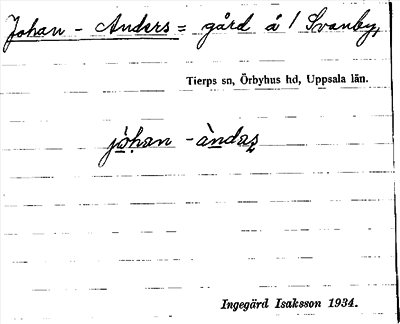 Johan - Anders = gård å / Svanby,
Tierps sn, Örbyhus hd, Uppsala län.
jòhan - àndaṣ
Ingegärd Isaksson 1934.